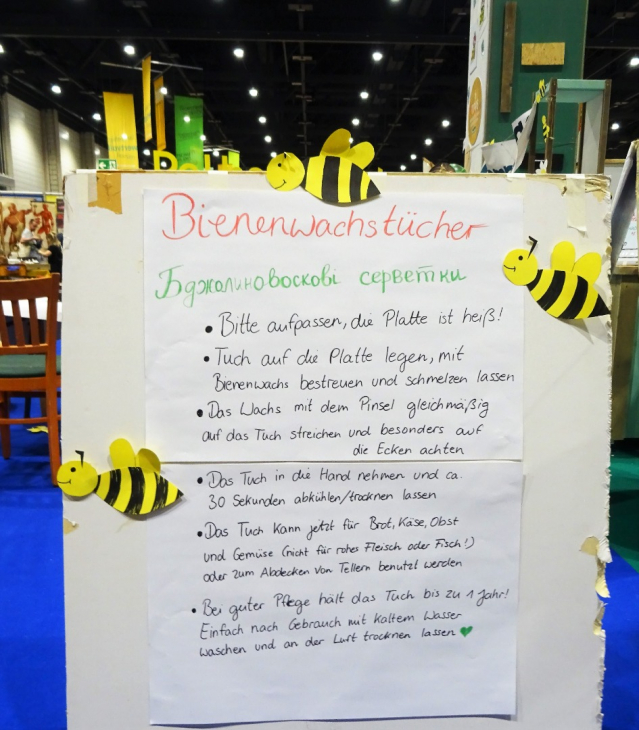 Bienenwachstücher
Бджолиновоскові серветки
• Bitte aufpassen, die Platte ist heiß!
• Tuch auf die Platte legen, mit
Bienenwachs bestreuen und schmelzen lassen
• Das Wachs mit dem Pinsel gleichmäßig
auf das Tuch streichen und besonders auf
die Ecken achten
• Das Tuch in die Hand nehmen und ca.
30 Sekunden abkühlen/trocknen lassen
• Das Tuch kann jetzt für Brot, Käse, Obst
und Gemüse (nicht für rohes Fleisch oder Fisch!)
oder zum Abdecken von Tellern benutzt werden
• Bei guter Pflege hält das Tuch bis zu 1 Jahr!
Einfach nach Gebrauch mit kaltem Wasser
waschen und an der Luft trocknen lassen